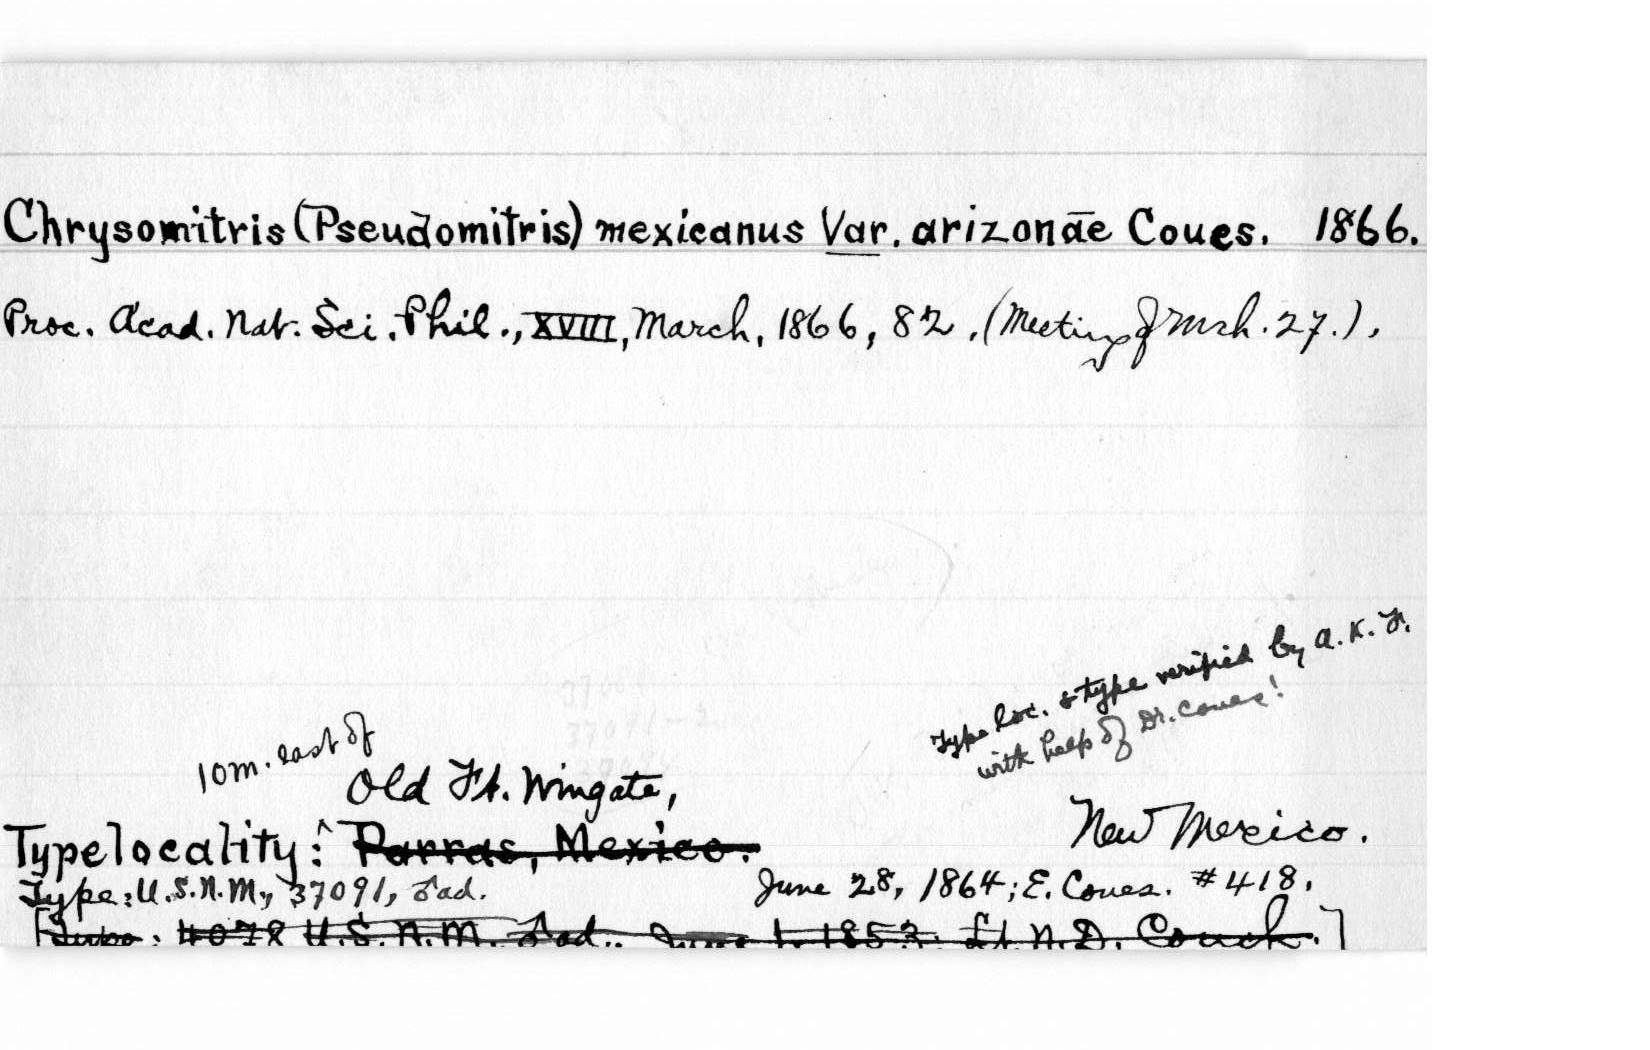 Chrysomitris (Pseudomitris) mexicanus Var. arizonae Coues. 1866.
Proc. Acad. Nat. Sci. Phil., XVIII, March, 1866, 82. (Meeting of Mch. 27.).
Type loc. & type verified by A.K.F.
with help of Dr. Coues!
10 m. east of
Old Ft. Wingate,
New Mexico.
Typelocality: ^ Parras, Mexico.
Type: U.S.N.M., 37091, ♂ ad. June 28, 1864; E. Coues. #418.
[Type: 4078 U.S.N.M. ♂ ad., June 1, 1853. Lt. N.D. Couch.]